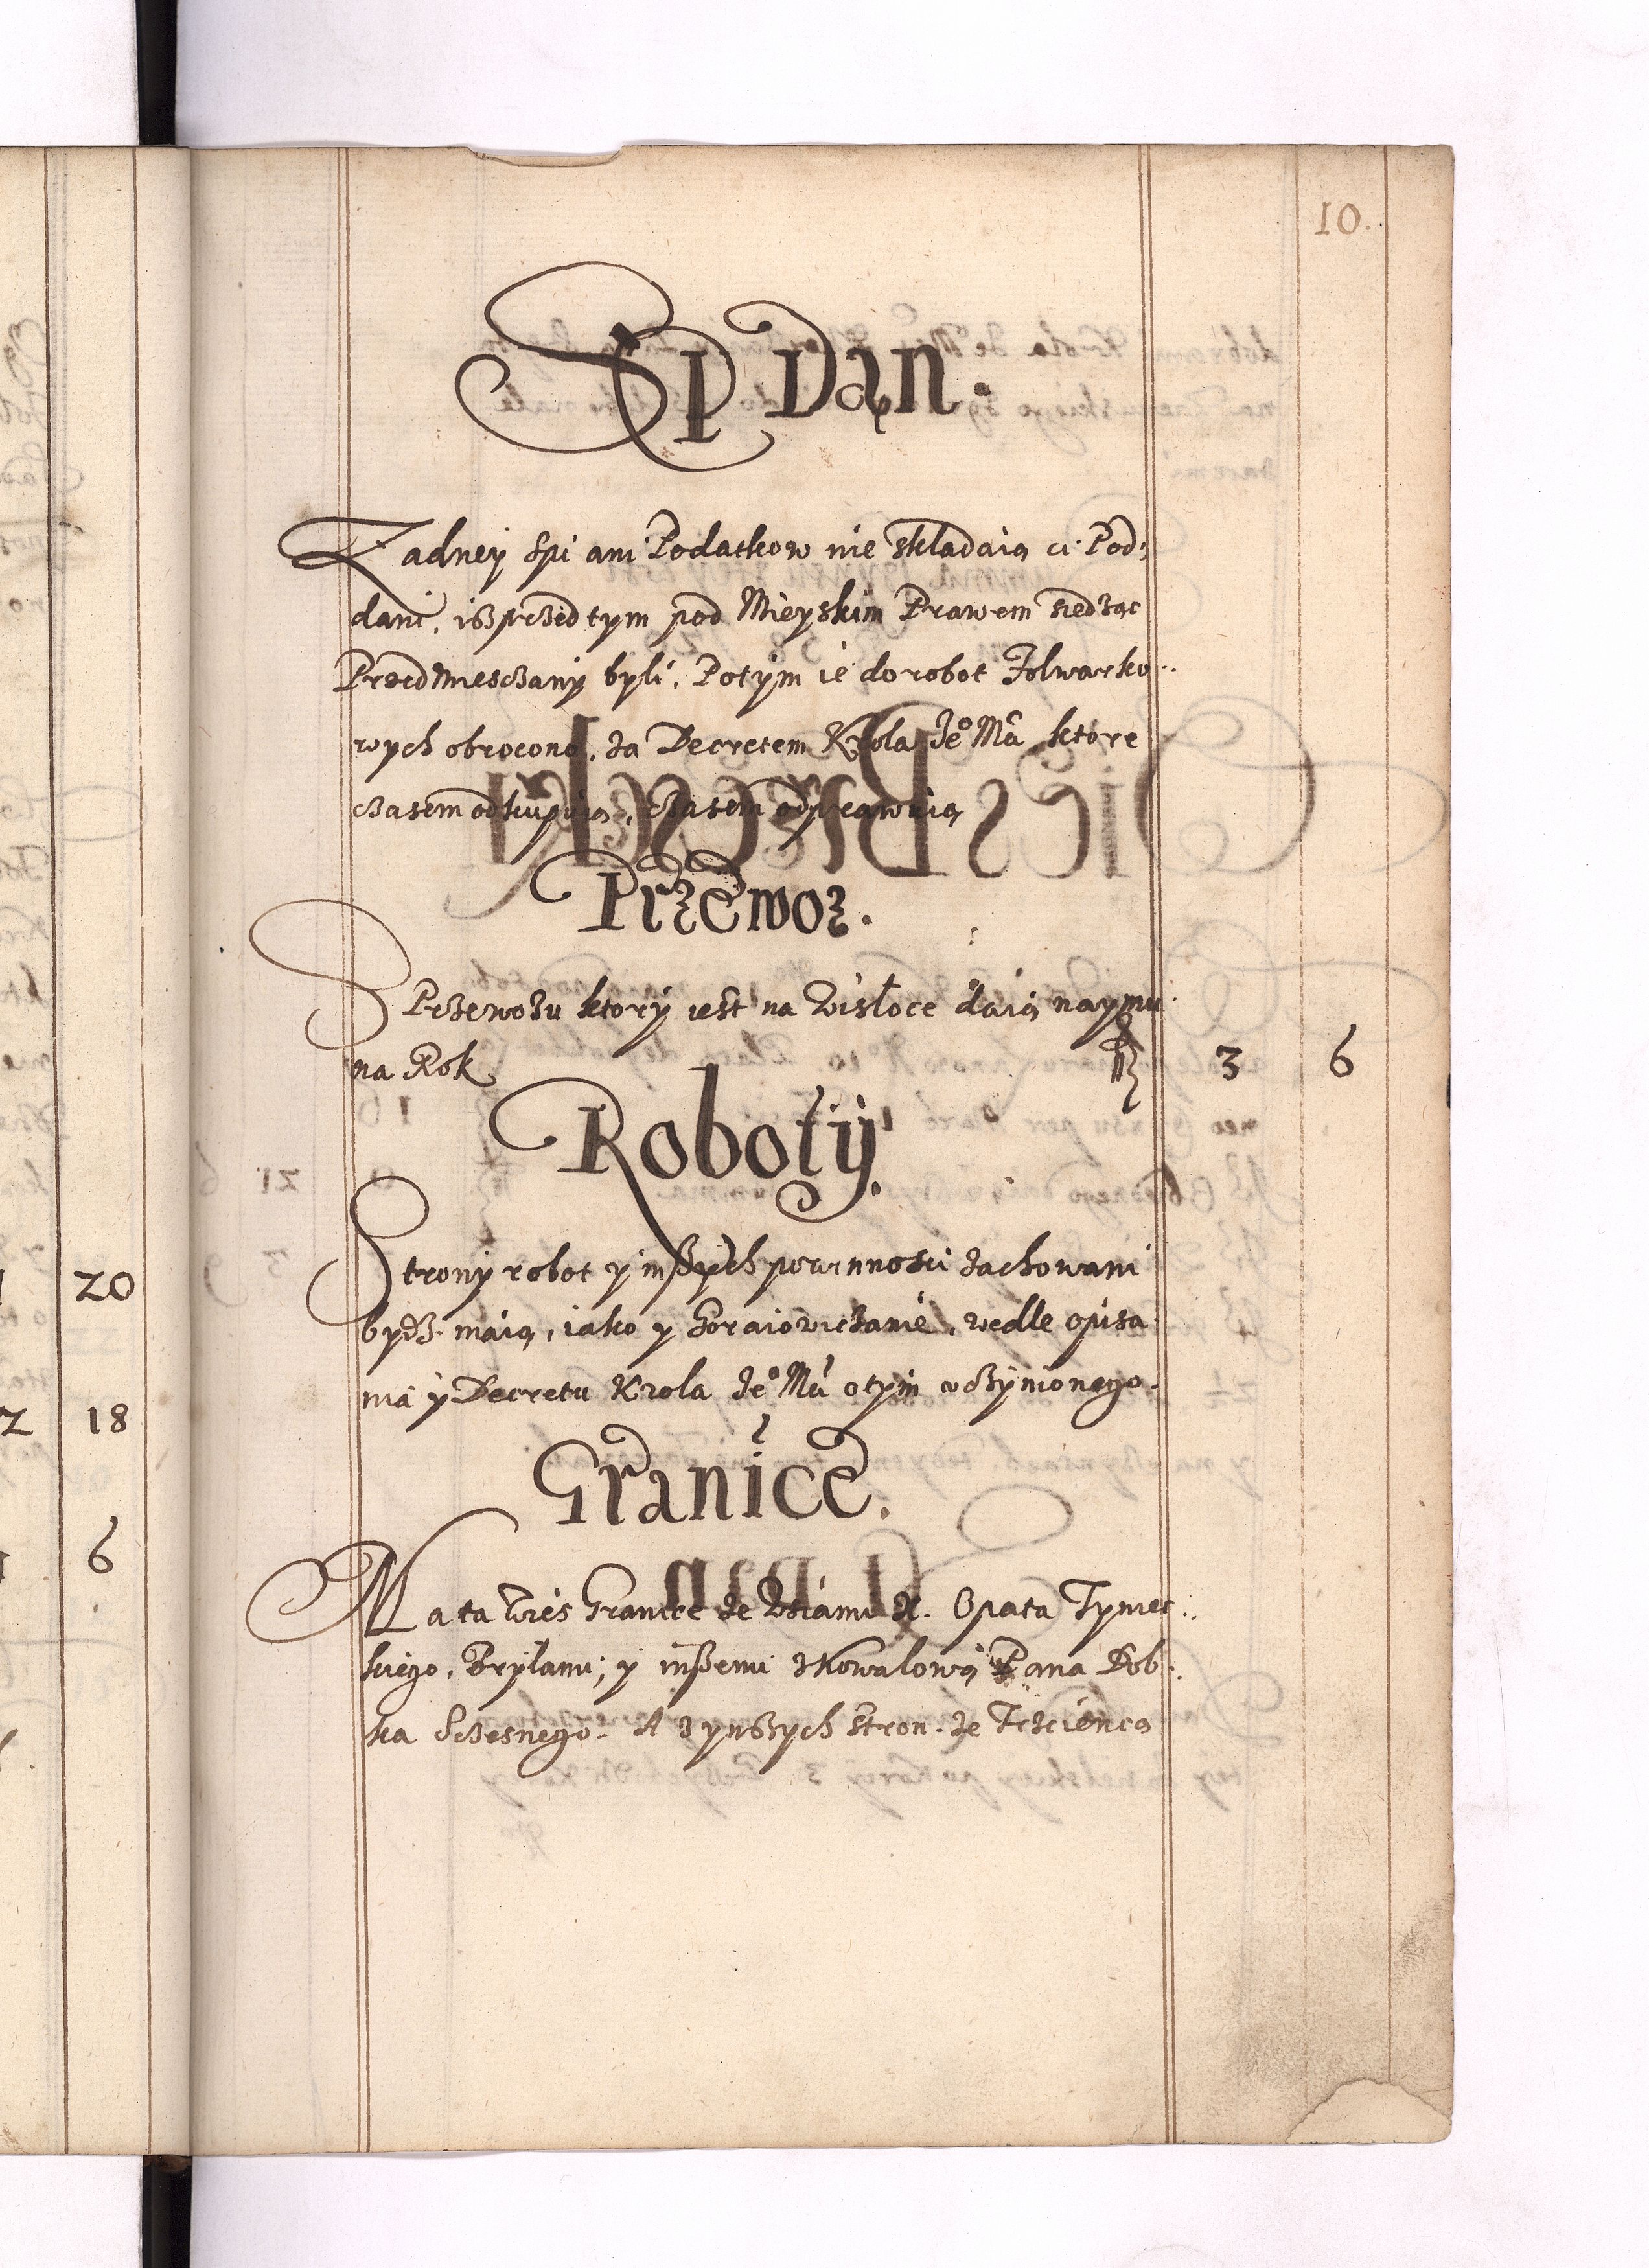 10.
Sp Dan.
Zadney Spi ani Podatkow nie składaią ci Pod:
dani, iż przed tym pod Mieyskim Prawem siedząc
Przedmiesczany byli, Potym ie do robot Folwarko:
wych obrocono, za Decretem Krola Jeº Mci, ktore
czasem odkupuią, czasem odprawuią
Przewoz.
S Przewozu ktory iest na Wisłoce daią naymu
na Rok 3 6
Roboty.
Strony robot y inszych powinnosci zachowani
bydz maią, iako y Goraiowiczanie, wedle opisa:
nia y Decretu Krola Jeº Mci o tym uczynionego.
Granice.
Ma ta Wies Granice ze Wsiami X. Opata Tyniec:
kiego, Bryłami; y inszemi z Kowalową Pana Dob:
ka Sczesnego. A z ynszych stron. ze
20
18
6